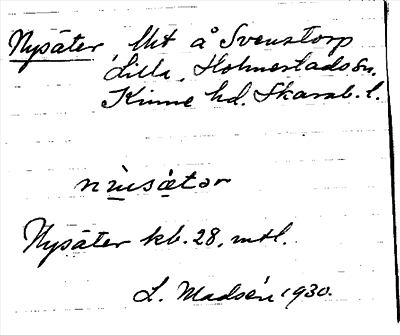 Nysäter, lht å Svenstorp
Lilla, Holmestads sn.
Kinne hd. Skarab. l.
nùsä̀tər
Nysäter kb. 28, mtl.
L. Madsén 1930.